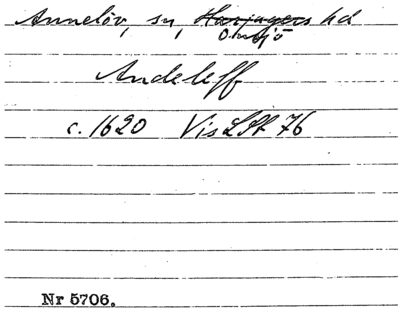 Annelöv, sn, Harjagers hd
Onsjö
Andeleff
c. 1620 Vis LSt 76
Nr 5706.